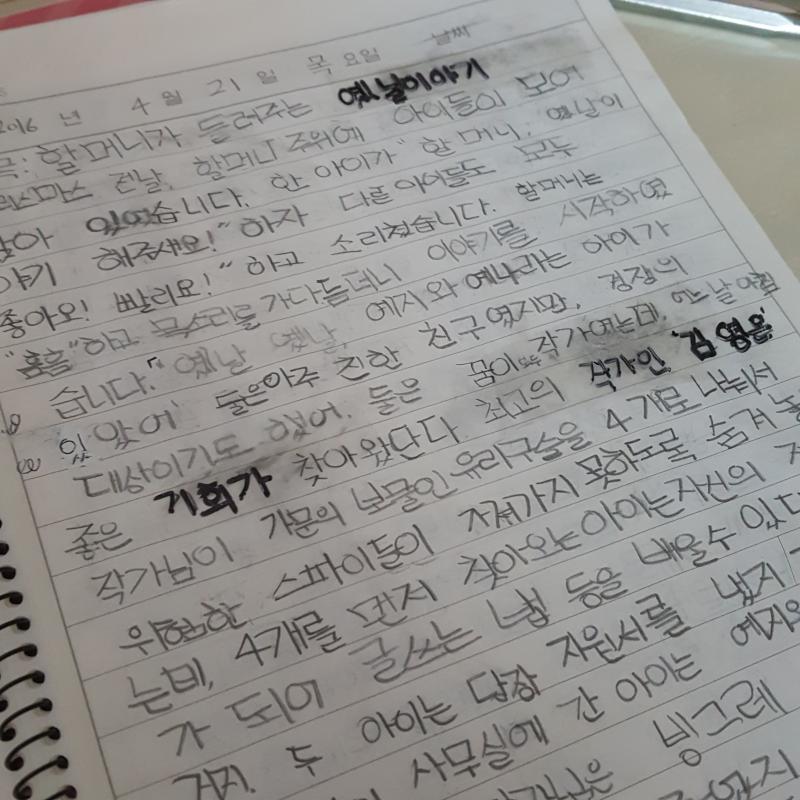 2016 년 4 월 21 일 목 요일 날씨
목: 할머니가 들려주는 옛날이야기
리스마스 전날, 할머니 주위에 아이들이 모여
앉아 있었습니다. 한 아이가 "할머니, 옛날이
야기 해주세요!" 하자 다른 아이들도 모두
좋아요! 빨리요!" 하고 소리쳤습니다. 할머니는
"흠흠" 하고 목소리를 가다듬더니 이야기를 시작하였
습니다. "옛날 옛날, 예지와 예나라는 아이가
있었어 둘은아주 친한 친구였지만, 경쟁의
대상이기도 했어. 둘은 꿈이 작가였는데, 어느날 아침
좋은 기회가 찾아왔단다. 최고의 작가인 '김영은'
작가님이 가문의 보물인 유리구슬을 4개로 나눠서
위험한 스파이들이 가져가지 못하도록 숨겨
는데, 4개를 먼저 찾아오는아이는자신의
가 되어 글쓰는 법 등을 배울수 있다
거지. 두 아이는 당장 지원서를 냈지
사무실에 간 아이는 예지와
빙그레